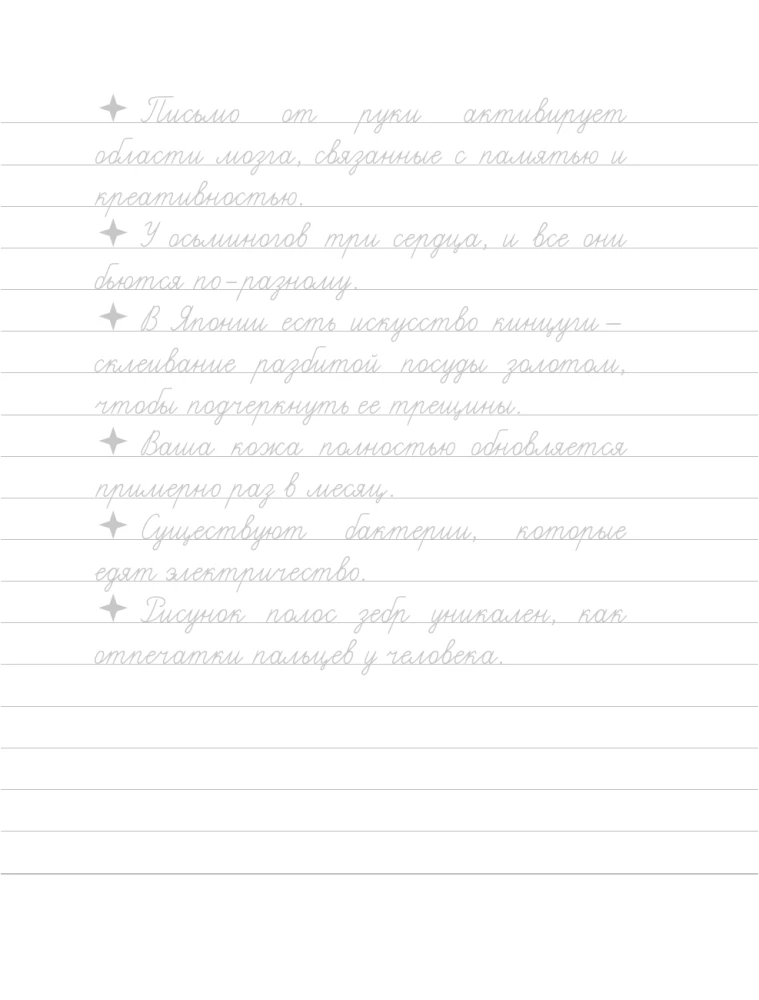 ✦ Письмо от руки активирует
области мозга, связанные с памятью и
креативностью.
✦ У осьминогов три сердца, и все они
бьются по-разному.
✦ В Японии есть искусство кинцуги –
склеивание разбитой посуды золотом,
чтобы подчеркнуть ее трещины.
✦ Ваша кожа полностью обновляется
примерно раз в месяц.
✦ Существуют бактерии, которые
едят электричество.
✦ Рисунок полос зебр уникален, как
отпечатки пальцев у человека.